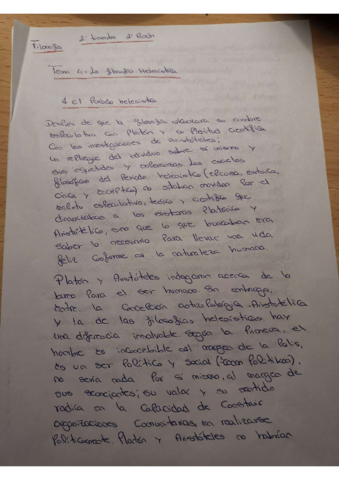 Filosofía 2º Trimestre 2º Bach
Tema 4: La filosofía Helenística
1. El Período helenístico
Después de que la filosofía alcanzara su cumbre
especulativa con Platón y su plenitud científica
con las investigaciones de Aristóteles;
un repliegue del individuo sobre si mismo y
sus inquietudes y las escuelas
filosofías del Periodo helenístico (epicúrea, estoica,
cínica y escéptica) no estaban movidas por el
espíritu especulativo, teórico y científico que
a los escritores Platónico y
Aristotélico, sino que lo que buscaban era,
saber lo necesario para llevar una vida
feliz conforme a la naturaleza humana.
Platón y Aristóteles indagaron acerca de lo
bueno para el ser humano. Sin embargo,
entre la concepción antropológica Aristotélica
y la de las filosofías helenísticas hay
una diferencia insalvable según la primera, el
hombre es inconcebible al margen de la Polis,
es un ser Político y social (zoon Politicon),
no sería nada por si mismo, al margen de
sus semejantes; su valor y su sentido
radica en la capacidad de construir
organizaciones comunitarias en realizarse
Políticamente. Platón y Aristóteles no habrían